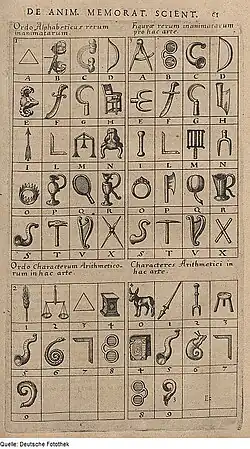 DE ANIM. MEMORAT. SCIENT. 61
Ordo Alphabeticus rerum inanimatarum
Figuræ rerum inanimatarum pro hac arte.
A B C D A B C D
E F G H E F G H
I L M N I L M N
O P Q R O P Q R
S T V X S T V X
Ordo Characterum Arithmeticorum in hac arte.
Characteres Arithmetici in hac arte.
1 2 3 4 0 1 2 3
5 6 7 8 4 5 6 7
9 8 9
Quelle: Deutsche Fotothek